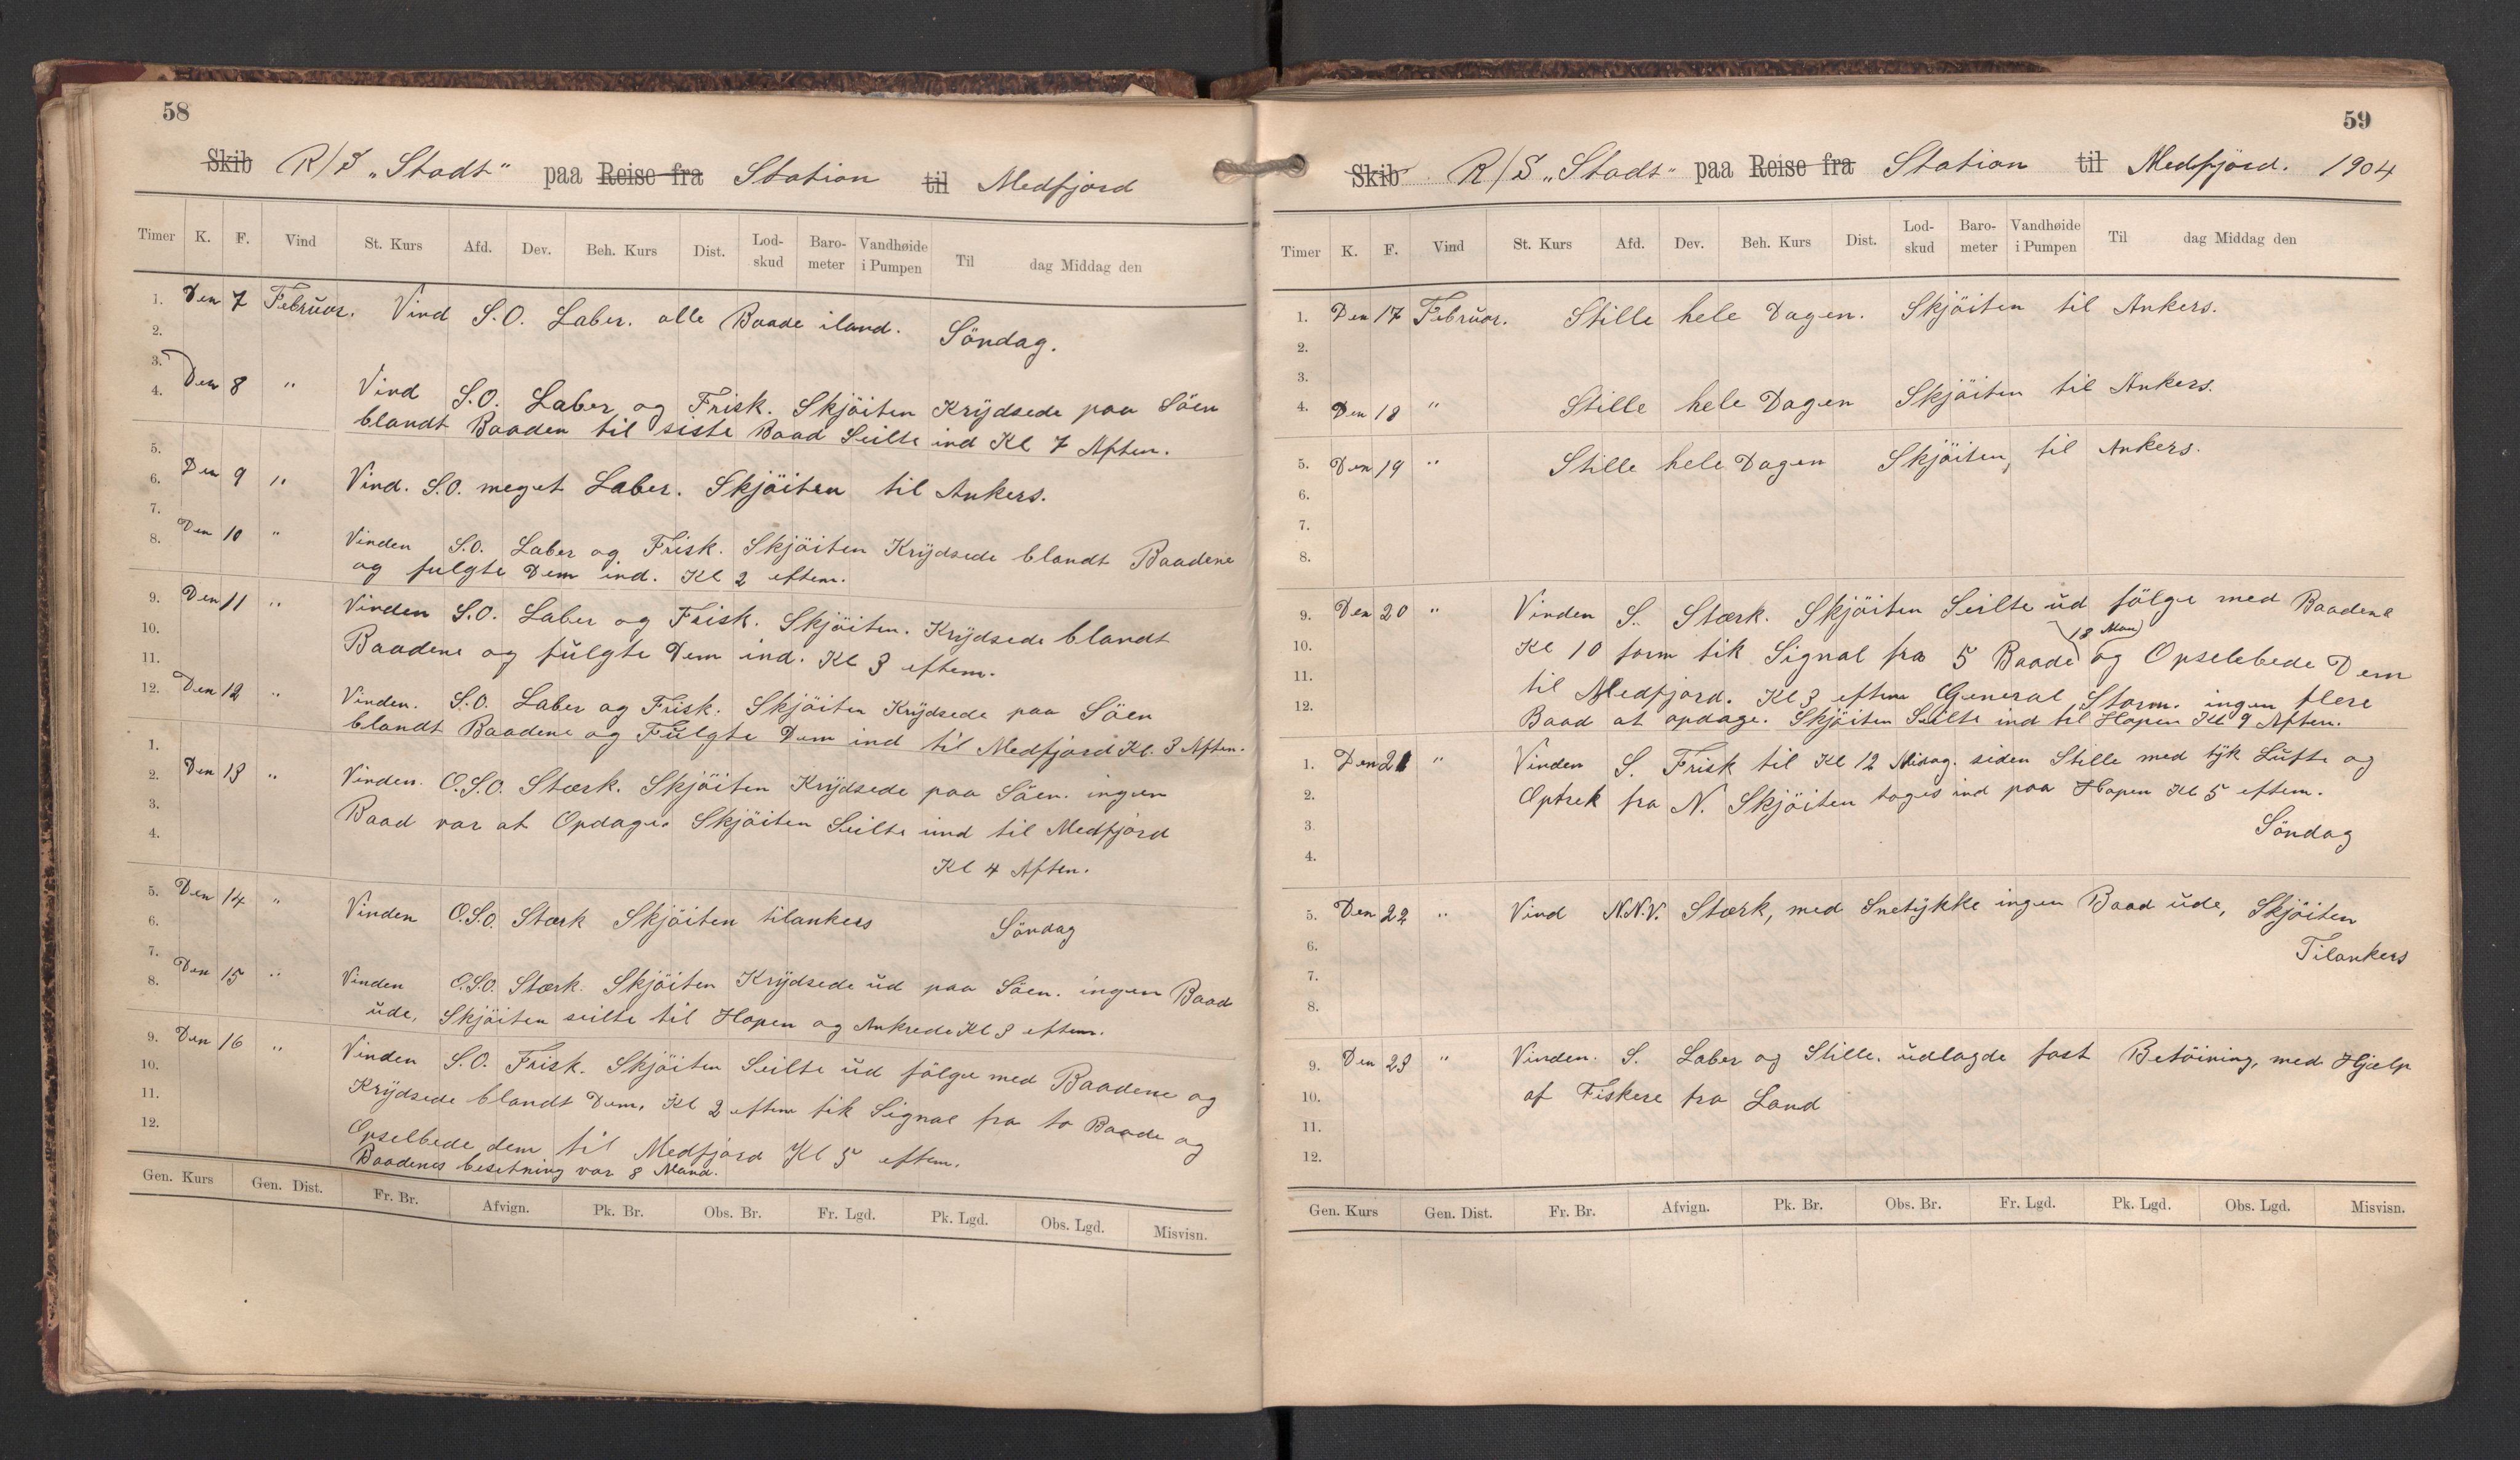 58
Skib R/S „Stadt“ paa Reise fra Station til Medfjord
Timer K. F. Vind St. Kurs Afd. Dev. Beh. Kurs Dist. Lod-skud Baro-meter Vandhøide i Pumpen Til dag Middag den
1. Den 7 Februar. Vind S.O. Laber. alle Baade iland.
2. Söndag.
3.
4. Den 8 " Vind S.O. Laber og Frisk. Skjöiten Krÿdsede paa Söen
blandt Baaden til siste Baad Seilte ind Kl 7 Aften.
5.
6. Den 9 " Vind. S.O. meget Laber. Skjöiten til Ankers.
7.
8. Den 10 " Vinden S.O. Laber og Frisk. Skjöiten Krÿdsede blandt Baadene
og fulgte Dem ind. Kl 2 eftem.
9. Den 11 " Vinden S.O. Laber og Frisk. Skjöiten. Krÿdsede blandt
10. Baadene og fulgte Dem ind. Kl 3 eftem.
11.
12. Den 12 " Vinden. S.O. Laber og Frisk. Skjöiten Krÿdsede paa Söen
blandt Baadene og Fulgte Dem ind til Medfjord Kl. 3 Aften.
1.
2. Den 13 " Vinden. O.S.O. Stærk. Skjöiten Krÿdsede paa Söen. ingen
3. Baad var at Opdage. Skjöiten Seilte ind til Medfjord
4. Kl 4 Aften.
5. Den 14 " Vinden O.S.O. Stærk Skjöiten tilankers
6. Söndag
7.
8. Den 15 " Vinden O.S.O. Stærk. Skjöiten Krÿdsede ud paa Söen. ingen Baad
ude, Skjöiten seilte til Hopen og Ankrede Kl 3 eftem.
9. Den 16 " Vinden S.O. Frisk. Skjöiten Seilte ud fölge med Baadene og
10. Krÿdsede blandt Dem, Kl 2 eftem fik Signal fra to Baade og
11. Opselbede dem til Medfjord Kl 5 eftem.
12. Baadenes besetning var 8 Mand.
Gen. Kurs Gen. Dist. Fr. Br. Afvign. Pk. Br. Obs. Br. Fr. Lgd. Pk. Lgd. Obs. Lgd. Misvisn.
59
Skib R/S „Stadt“ paa Reise fra Station til Medfjord. 1904
Timer K. F. Vind St. Kurs Afd. Dev. Beh. Kurs Dist. Lod-skud Baro-meter Vandhøide i Pumpen Til dag Middag den
1. Den 17 Februar. Stille hele Dagen. Skjöiten til Ankers.
2.
3.
4. Den 18 " Stille hele Dagen Skjöiten til Ankers.
5. Den 19 " Stille hele Dagen Skjöiten, til Ankers.
6.
7.
8.
9. Den 20 " Vinden S. Stærk. Skjöiten Seilte ud fölge med Baadene
18 Man
10. Kl 10 form fik Signal fra 5 Baade og Opselebede Dem
11. til Medfjord. Kl 3 eftem General Storm. ingen flere
12. Baad at opdage. Skjöiten Seilte ind til Hopen Kl 9 Aften.
1. Den 21 " Vinden S. Frisk til Kl 12 Midag. siden Stille med tÿk Lufte og
2. Optrek fra N. Skjöiten toges ind paa Hopen Kl 5 eftem.
3. Söndag
4.
5. Den 22 " Vind N.N.V. Stærk, med Snetÿkke ingen Baad ude, Skjöiten
6. Tilankers
7.
8.
9. Den 23 " Vinden. S. Laber og Stille. udlagde fast Betöining, med Hjælp
10. af Fiskere fra Land
11.
12.
Gen. Kurs Gen. Dist. Fr. Br. Afvign. Pk. Br. Obs. Br. Fr. Lgd. Pk. Lgd. Obs. Lgd. Misvisn.